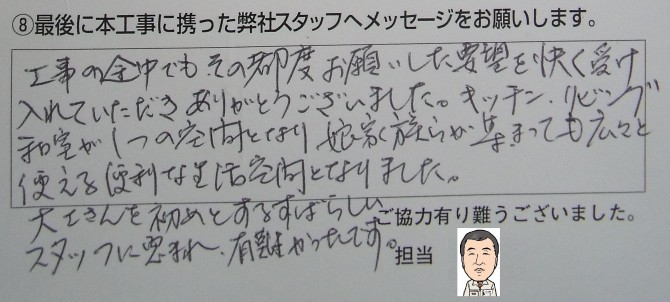 ⑧最後に本工事に携った弊社スタッフへメッセージをお願いします。
工事の途中でもその都度お願いした要望を快く受け
入れていただきありがとうございました。キッチン、リビング
和室が1つの空間となり娘家族らが集まっても広々と
使える便利な生活空間となりました。
大工さんを初めとするすばらしい
ご協力有り難うございました。
スタッフに恵まれ、有難かったです。
担当